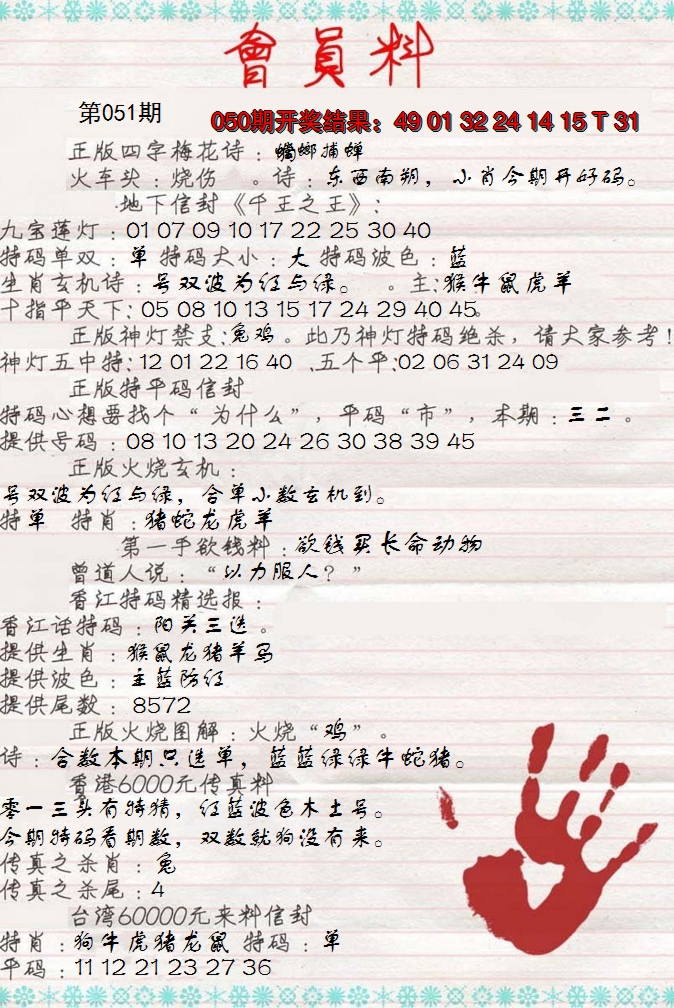 會員料
第051期
050期开奖结果：49 01 32 24 14 15 T 31
正版四字梅花诗：螳螂捕蝉
火车头：烧伤 。诗：东西南朔，小肖今期开好码。
地下信封《千王之王》：
九宝莲灯：01 07 09 10 17 22 25 30 40
特码单双：单 特码大小：大 特码波色：蓝
生肖玄机诗：号双波为红与绿。 。主:猴牛鼠虎羊
十指平天下: 05 08 10 13 15 17 24 29 40 45。
正版神灯禁支:兔鸡。此乃神灯特码绝杀，请大家参考!
神灯五中特:12 01 22 16 40 .五个平:02 06 31 24 09
正版特平码信封
特码心想要找个“为什么”，平码“市”，本期：三二。
提供号码：08 10 13 20 24 26 30 38 39 45
正版火烧玄机：
号双波为红与绿，合单小数玄机到。
特单 特肖：猪蛇龙虎羊
第一手欲钱料：欲钱买长命动物
曾道人说：“以力服人？”
香江特码精选报：
香江话特码：阳关三迭。
提供生肖：猴鼠龙猪羊马
提供波色：主蓝防红
提供尾数：8572
正版火烧图解：火烧“鸡”。
诗：合数本期只选单，蓝蓝绿绿牛蛇猪。
香港6000元传真料
零一三头有特猜，红蓝波色木土号。
今期特码看期数，双数就狗没有来。
传真之杀肖：兔
传真之杀尾：4
台湾60000元来料信封
特肖：狗牛虎猪龙鼠 特码：单
平码：11 12 21 23 27 36